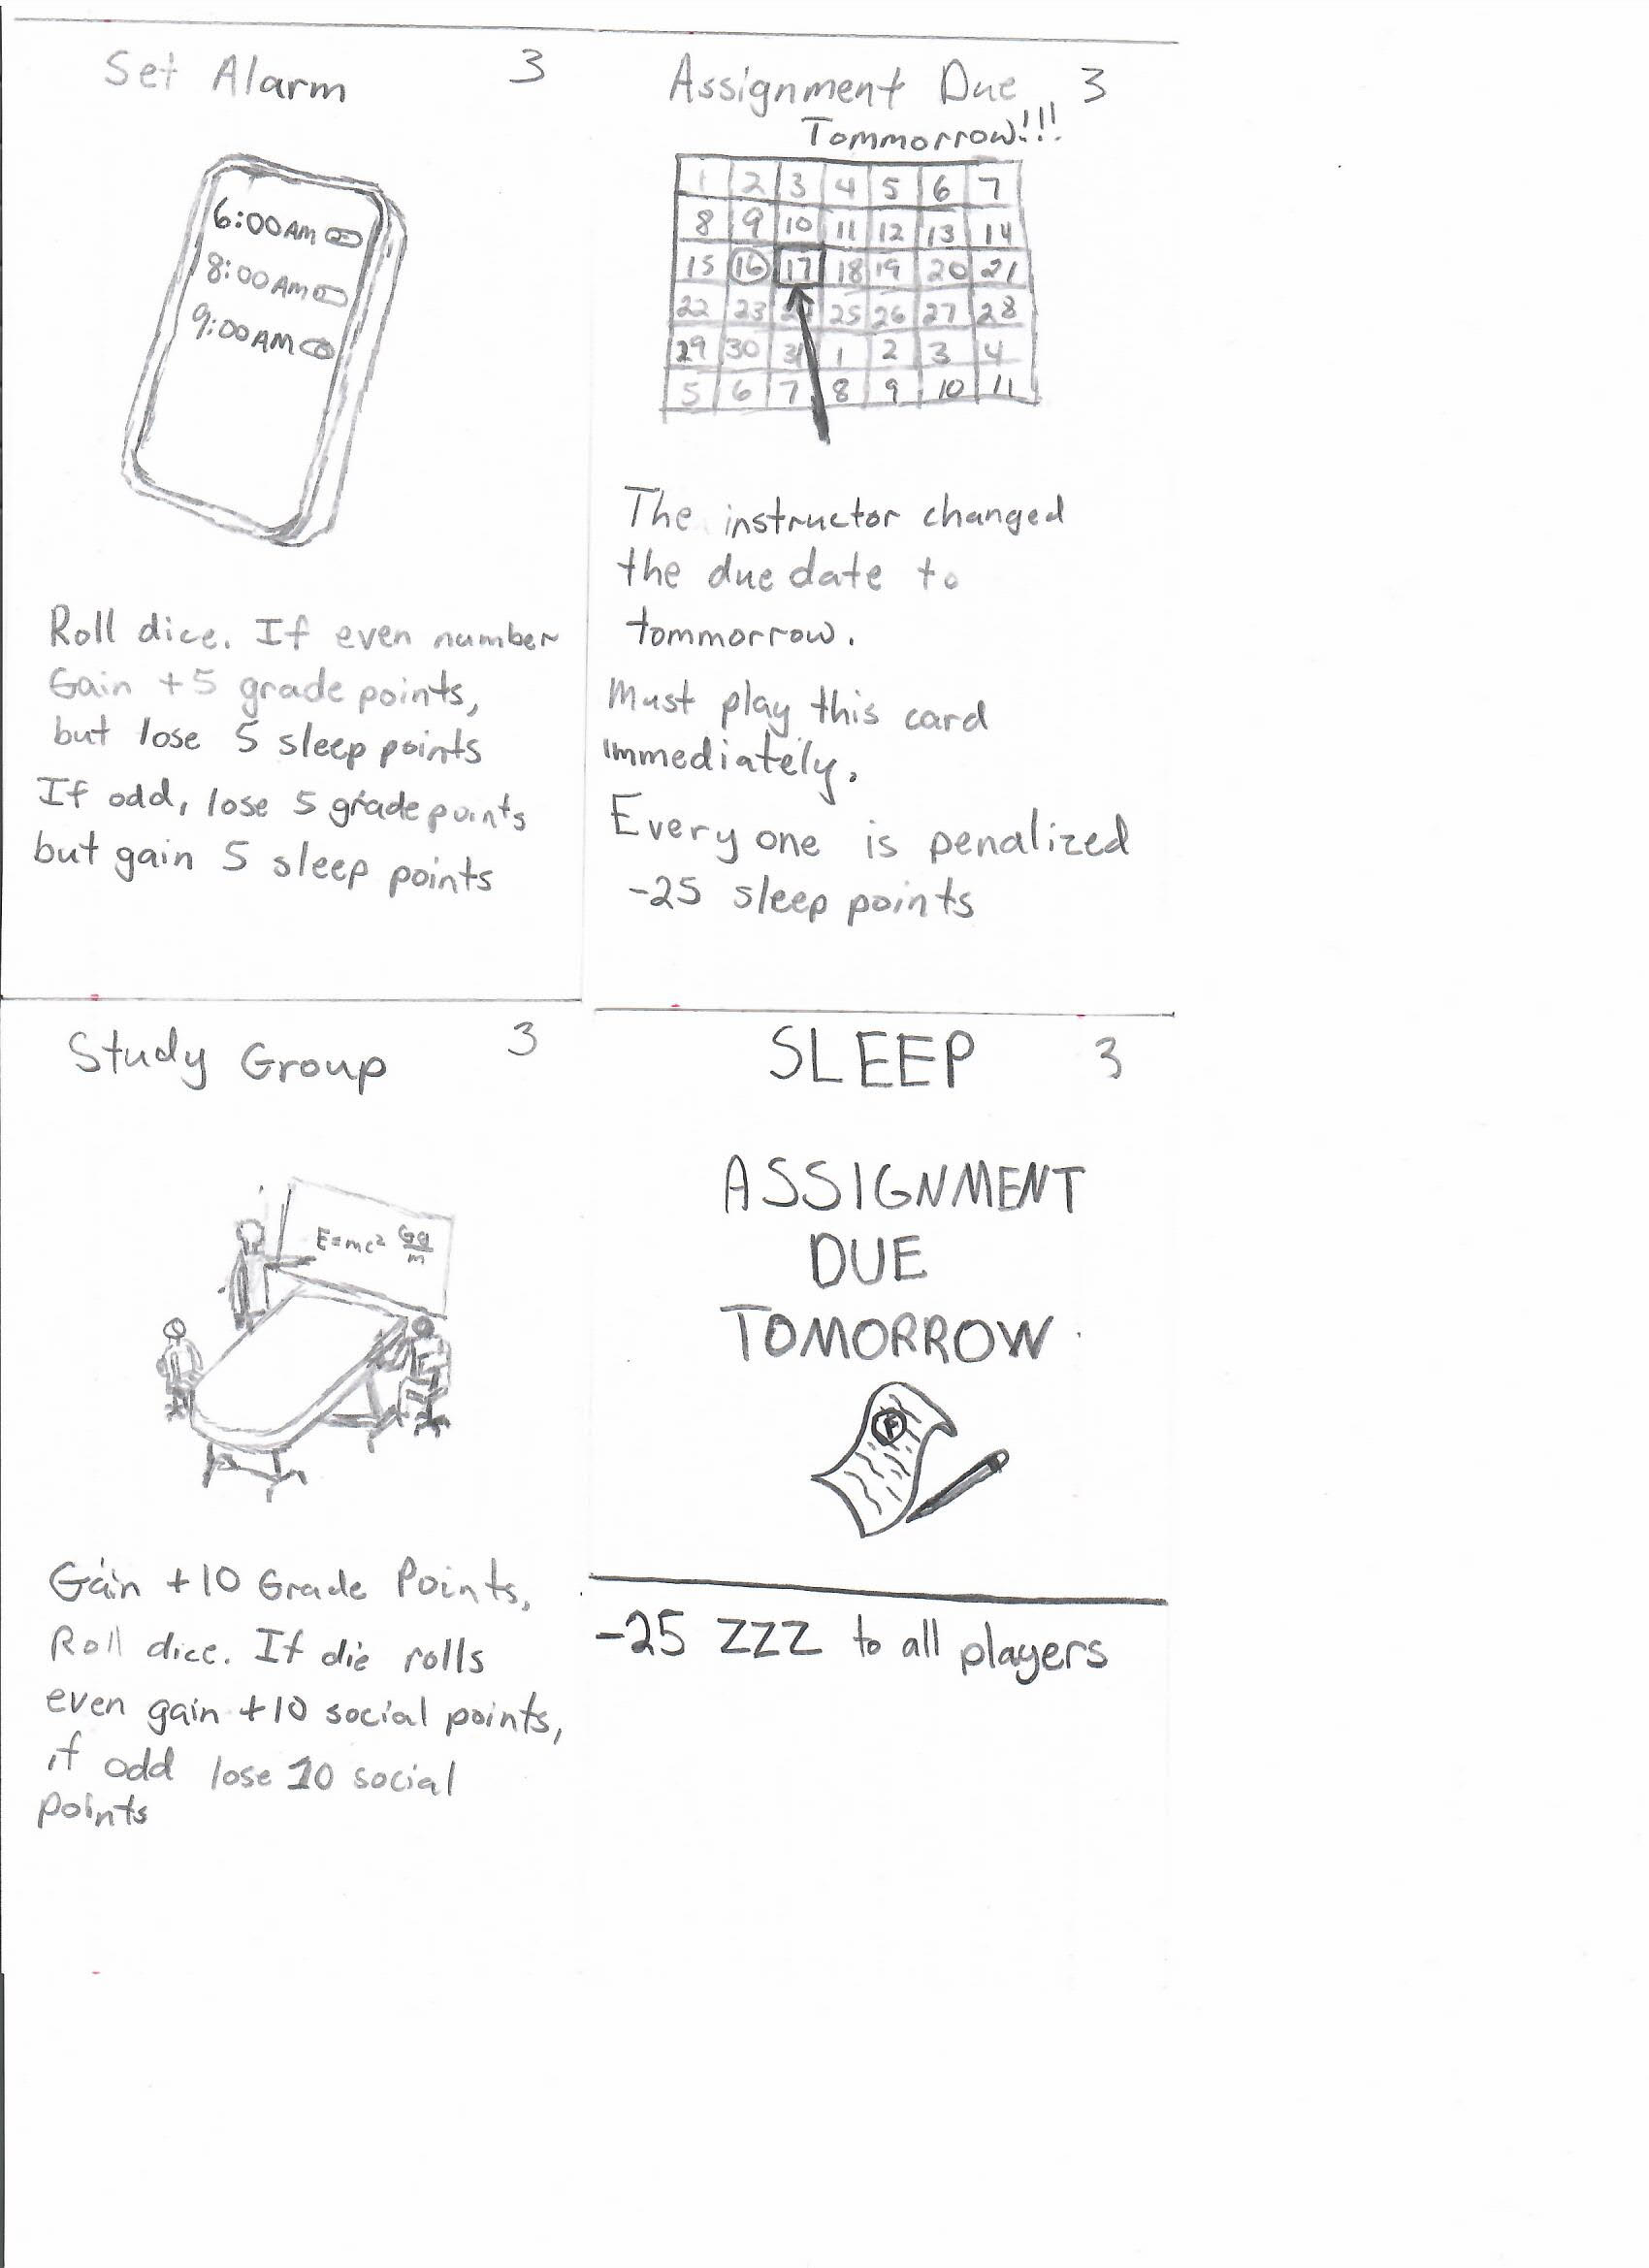 Set Alarm 3
6:00AM
8:00AM
9:00AM
Roll dice. If even number
Gain +5 grade points,
but lose 5 sleep points
If odd, lose 5 grade points
but gain 5 sleep points
Assignment Due 3
Tommorrow!!!
1 2 3 4 5 6 7
8 9 10 11 12 13 14
15 16 17 18 19 20 21
22 23 25 26 27 28
29 30 31 1 2 3 4
5 6 7 8 9 10 11
The instructor changed
the due date to
tommorrow.
Must play this card
immediately.
Everyone is penalized
-25 sleep points
Study Group 3
E=mc² Gg
m
Gain +10 Grade Points,
Roll dice. If die rolls
even gain +10 social points,
if odd lose 10 social
points
SLEEP 3
ASSIGNMENT
DUE
TOMORROW
F
-25 ZZZ to all players